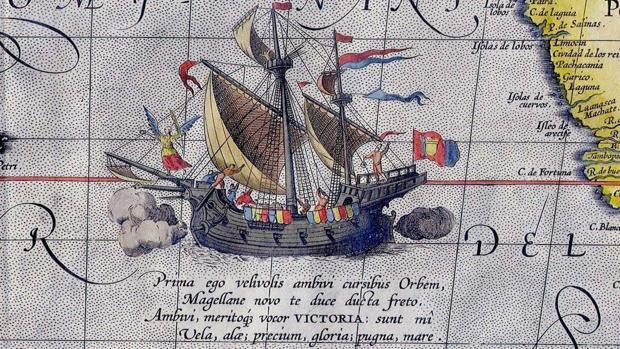 Isola de lobos
C. de laguia
P. de Salinas.
Isolas de lobos
Limocin
Civdad de los rei
Pachacania
Garico.
Laguna
Isolas de cuervos.
Isleo de arecife
C. de Fortuna
C. Blanc
Petri
R
DEL
Prima ego velivolis ambivi cursibus Orbem,
Magellane novo te duce ducta freto.
Ambivi, meritoq; vocor VICTORIA: sunt mi
Vela, alæ; precium, gloria; pugna, mare.